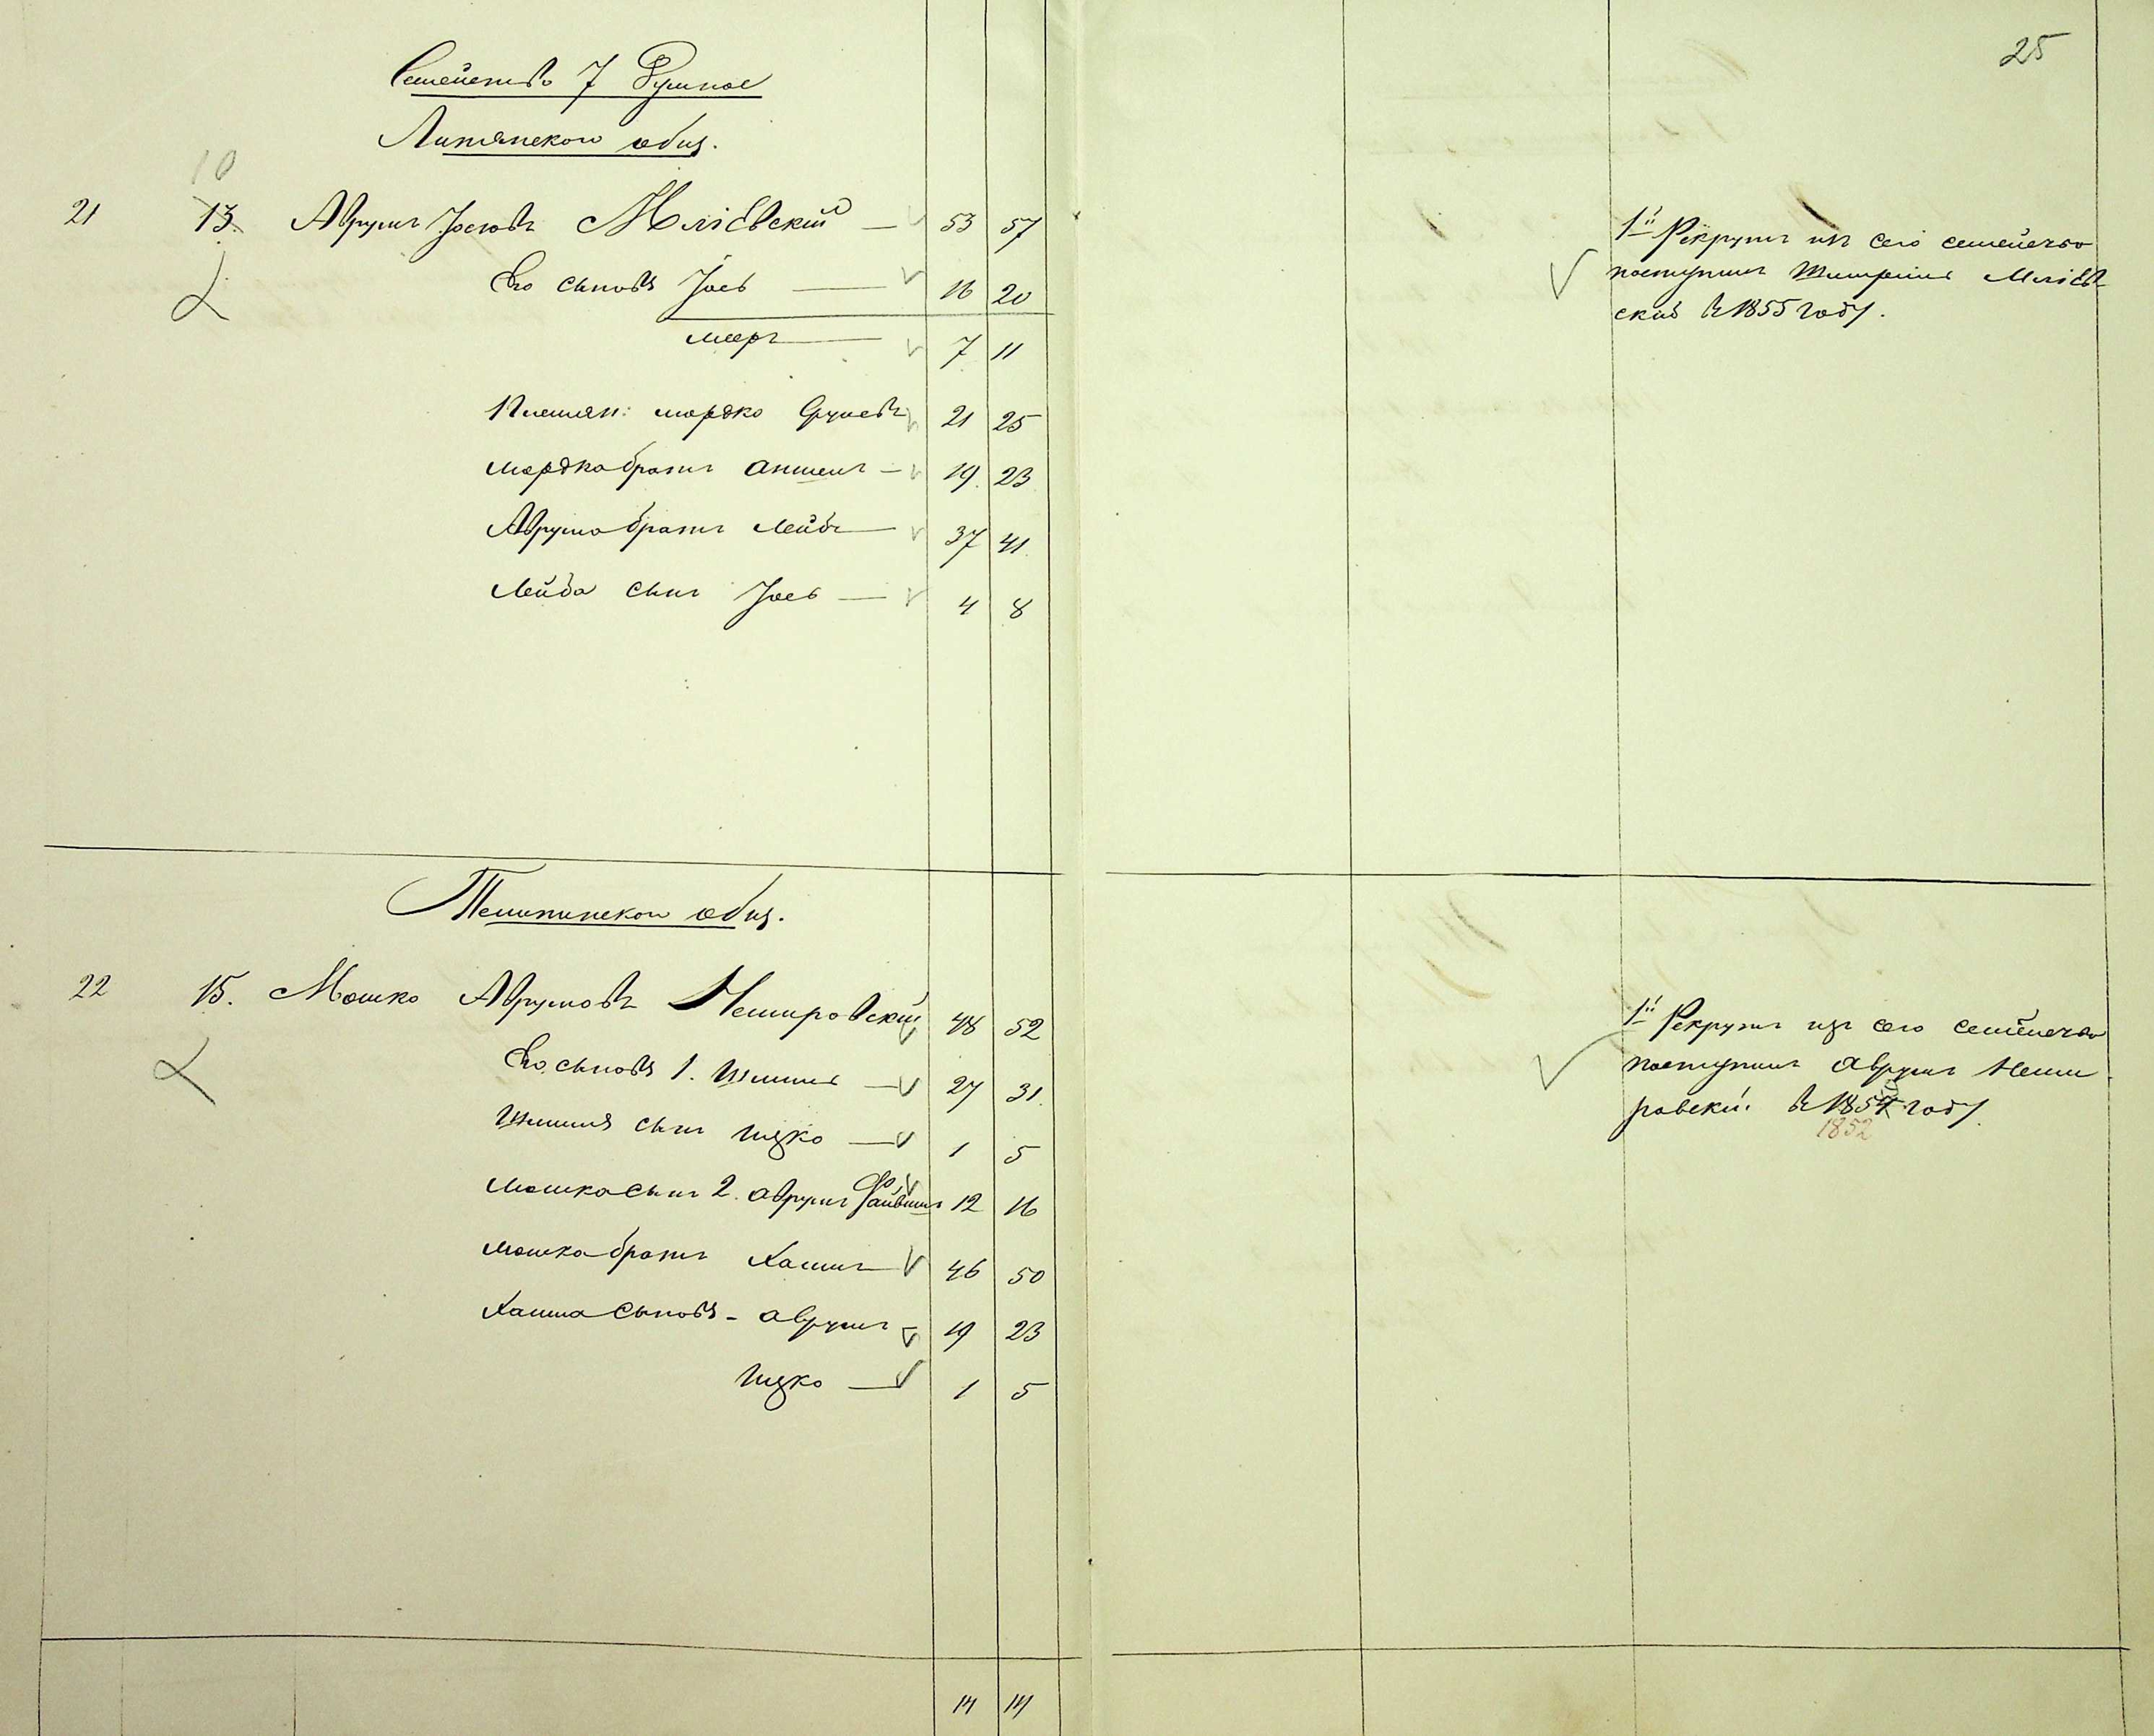 25
Семейство 7 душное
Литинского общ.
10
21 13. Аврумъ Іосіовъ Мліевскій — 53 57
Его сыновья Іось — 16 20
Мееръ — 7 11
Племян: Мордко Сруловъ 21 25
Мордка братъ Аншель — 19 23
Аврума братъ Лейба — 37 41
Лейба сынъ Іось — 4 8
1й Рекрутъ изъ сего семейства
поступилъ Мліев
скій въ 1855 году.
общ.
22 15. Мошко Аврумовъ Немировскій 48 52
Его сыновья 1. Шмиль — 27 31
Шмиля сынъ Ицко — 1 5
Мошка сынъ 2. Аврумъ Файвишъ 12 16
Мошка братъ Хаимъ 46 50
Хаима сыновья - Аврумъ 19 23
Ицко — 1 5
1й Рекрутъ изъ сего семейства
поступилъ Аврумъ Неми
ровскій въ 1854 году.
1852
14 14